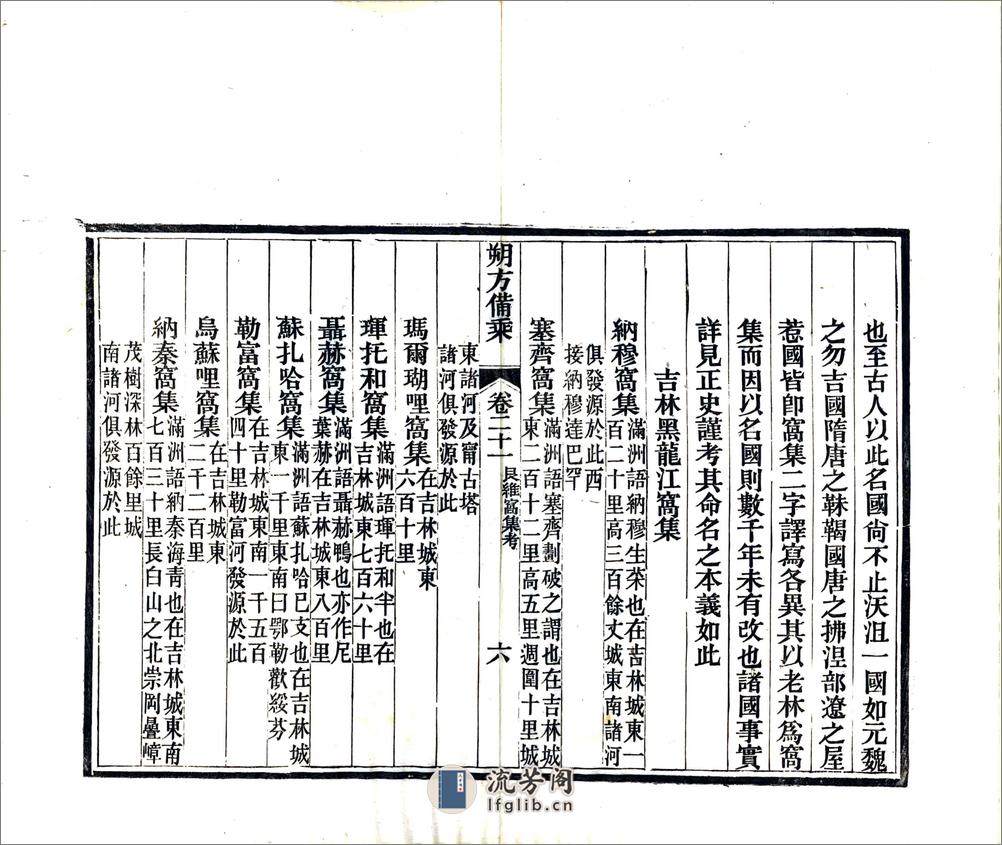 也至古人以此名國尚不止沃沮一國如元魏
之勿吉國隋唐之靺鞨國唐之拂涅部遼之屋
惹國皆卽窩集二字譯寫各異其以老林爲窩
集而因以名國則數千年未有改也諸國事實
詳見正史謹考其命名之本義如此
吉林黑龍江窩集
納穆窩集滿洲語納穆生菜也在吉林城東一
百二十里高三百餘丈城東南諸河
俱發源於此西
接納穆達巴罕
塞齊窩集滿洲語塞齊劃破之謂也在吉林城
東二百十二里高五里週圍十里城
朔方備乘
卷二十一
艮維窩集考
六
東諸河及甯古塔
諸河俱發源於此
瑪爾瑚哩窩集在吉林城東
六百十里
琿托和窩集滿洲語琿托和半也在
吉林城東七百六十里
聶赫窩集滿洲語聶赫鴨也亦作尼
葉赫在吉林城東八百里
蘇扎哈窩集滿洲語蘇扎哈巳支也在吉林城
東一千里東南曰鄂勒歡綏芬
勒富窩集在吉林城東南一千五百
四十里勒富河發源於此
烏蘇哩窩集在吉林城東
二千二百里
納秦窩集滿洲語納秦海靑也在吉林城東南
七百三十里長白山之北崇岡疊嶂
茂樹深林百餘里城
南諸河俱發源於此
流芳阁
lfglib.cn